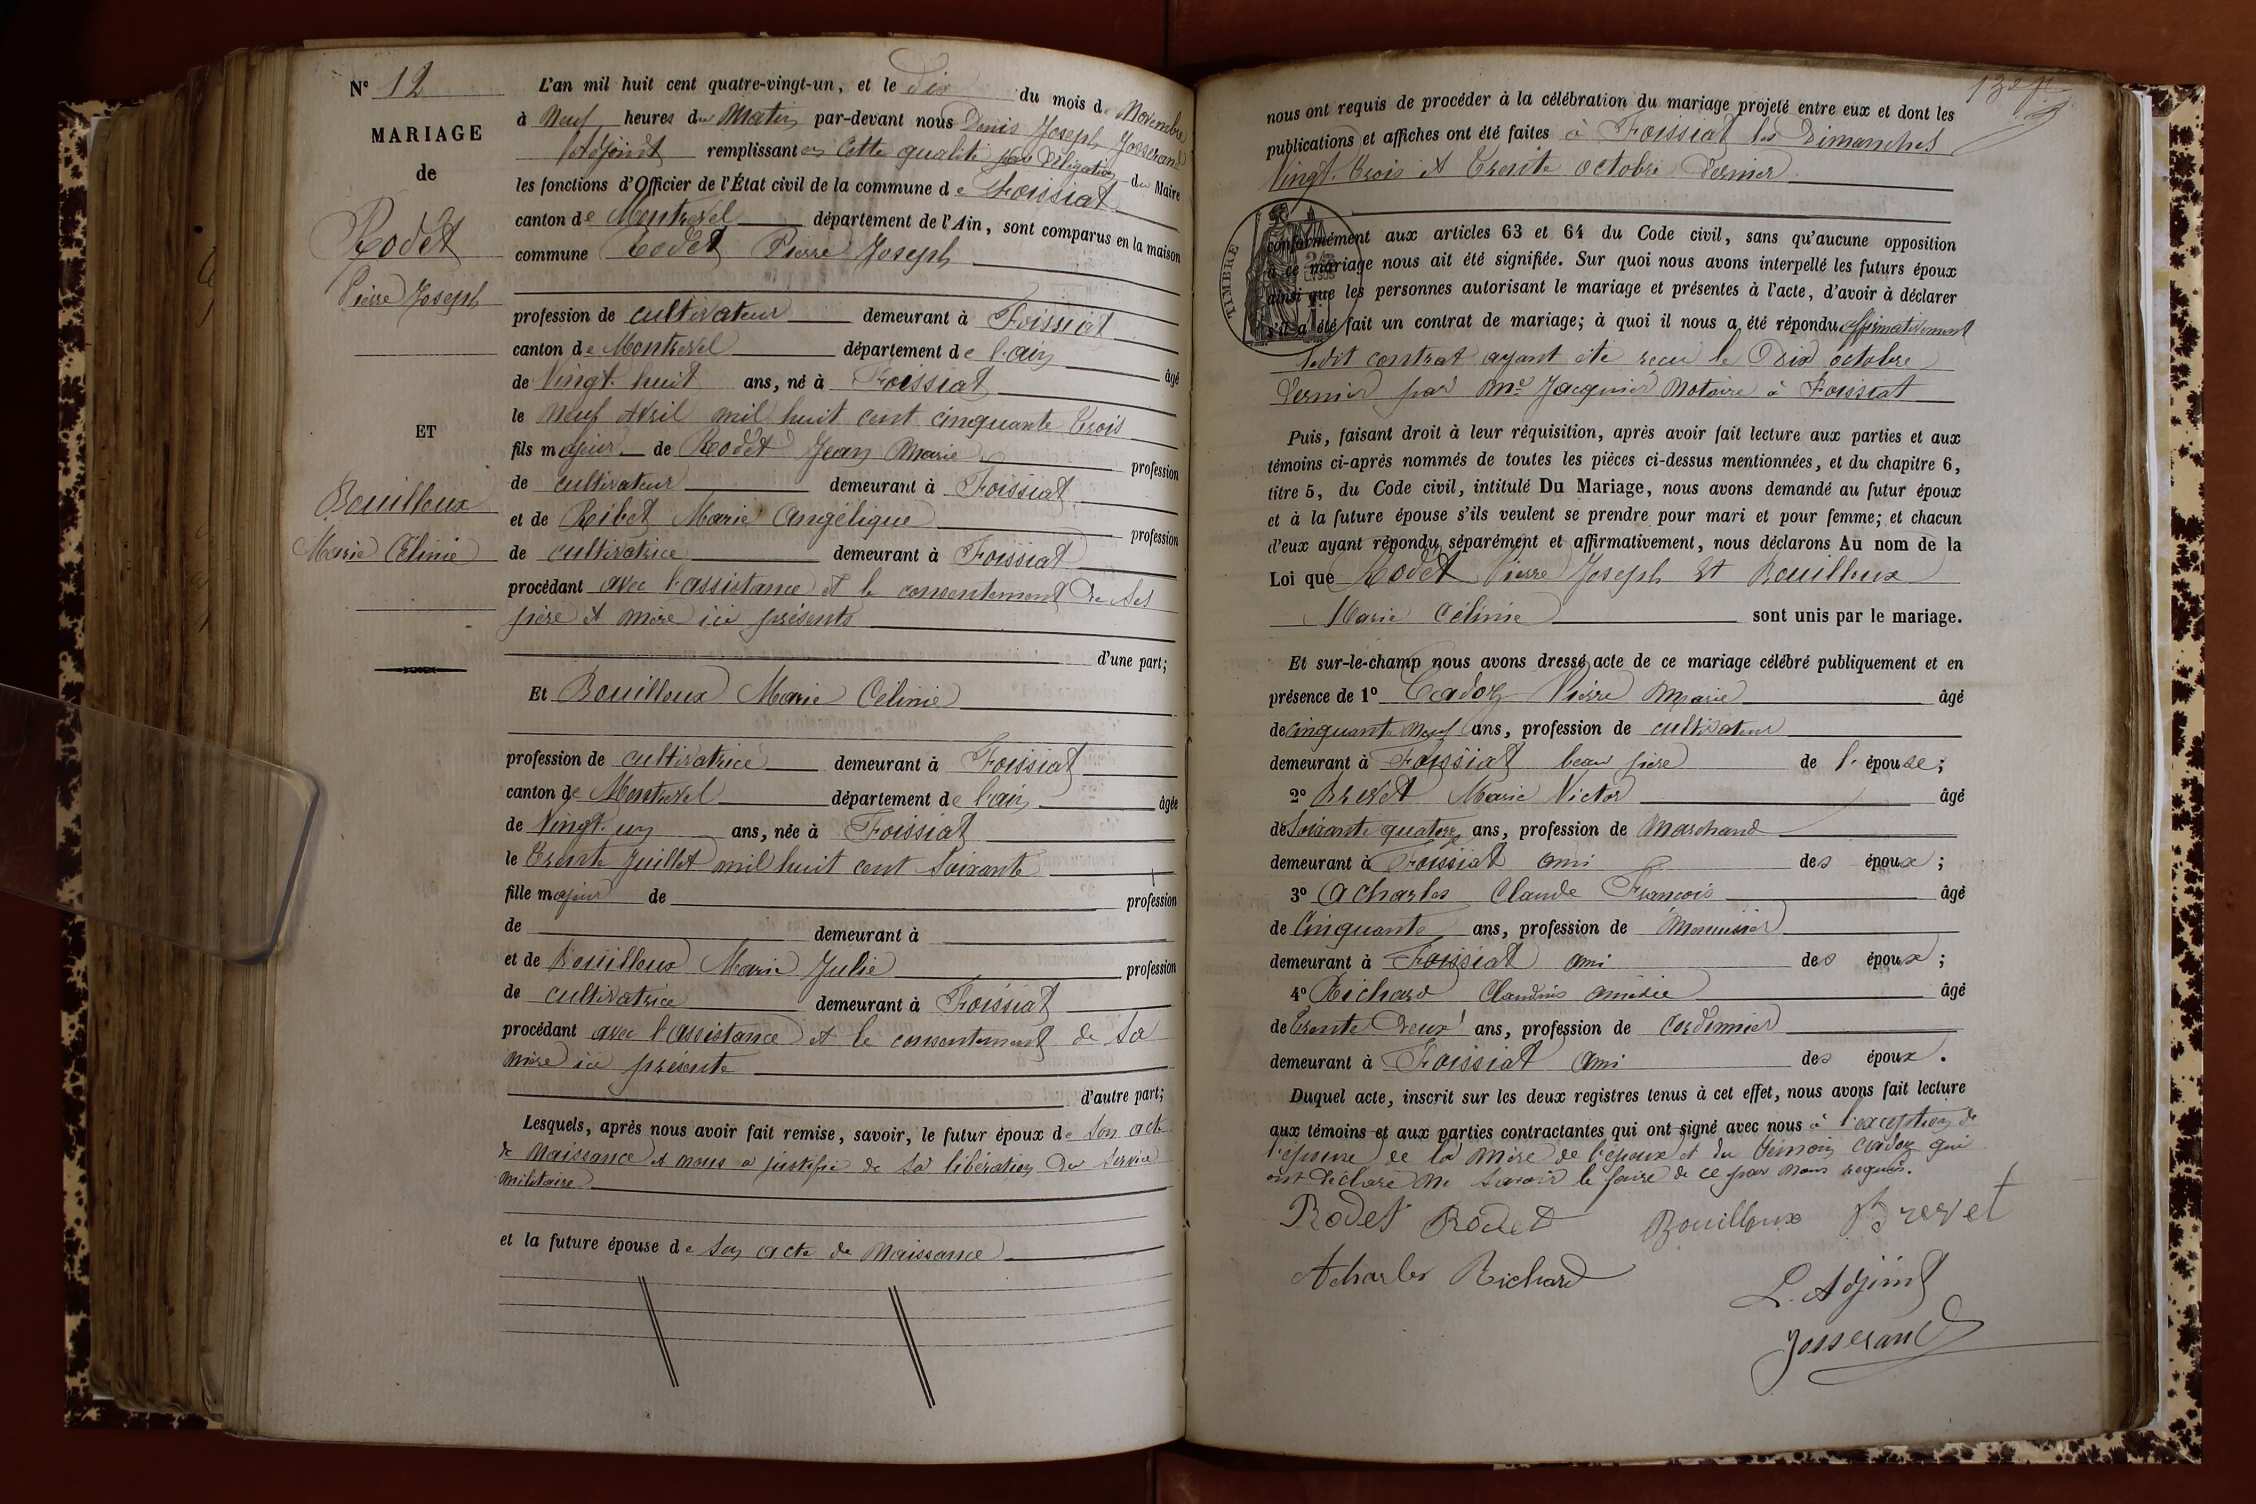 N° 12
MARIAGE
de
Rodet
Pierre Joseph
ET
Bouilloux
Marie Célinie
L'an mil huit cent quatre-vingt-un, et le Dix du mois de Novembre
à Neuf heures du Matin par-devant nous Denis Joseph Josserand
Adjoint remplissant en Cette qualité par Délégation du Maire
les fonctions d'Officier de l'État civil de la commune de Foissiat
canton de Montrevel département de l'Ain, sont comparus en la maison
commune Rodet Pierre Joseph
profession de cultivateur demeurant à Foissiat
canton de Montrevel département de l'ain âgé
de Vingt-huit ans, né à Foissiat
le neuf Avril mil huit cent cinquante trois
fils majeur de Rodet Jean Marie profession
de cultivateur demeurant à Foissiat
et de Ribet Marie Angélique profession
de cultivatrice demeurant à Foissiat
procédant avec l'assistance et le consentement de ses
père et mère ici présents
d'une part;
Et Bouilloux Marie Célinie
profession de cultivatrice demeurant à Foissiat
canton de Montrevel département de l'ain âgée
de Vingt-un ans, née à Foissiat
le trente Juillet mil huit cent soixante
fille majeur de profession
de demeurant à
et de Bouilloux Marie Julie profession
de cultivatrice demeurant à Foissiat
procédant avec l'assistance et le consentement de sa
mère ici présente
d'autre part;
Lesquels, après nous avoir fait remise, savoir, le futur époux de son acte
de Naissance et nous a justifié de sa libération du service
militaire
et la future épouse de son acte de Naissance
nous ont requis de procéder à la célébration du mariage projeté entre eux et dont les
publications et affiches ont été faites à Foissiat les Dimanches
Vingt-trois et trente octobre dernier
TIMBRE
conformément aux articles 63 et 64 du Code civil, sans qu'aucune opposition
à ce mariage nous ait été signifiée. Sur quoi nous avons interpellé les futurs époux
ainsi que les personnes autorisant le mariage et présentes à l'acte, d'avoir à déclarer
s'il a été fait un contrat de mariage; à quoi il nous a été répondu affirmativement
ledit contrat ayant été reçu le Dix octobre
dernier par Me Jacquier Notaire à Foissiat
Puis, faisant droit à leur réquisition, après avoir fait lecture aux parties et aux
témoins ci-après nommés de toutes les pièces ci-dessus mentionnées, et du chapitre 6,
titre 5, du Code civil, intitulé Du Mariage, nous avons demandé au futur époux
et à la future épouse s'ils veulent se prendre pour mari et pour femme; et chacun
d'eux ayant répondu séparément et affirmativement, nous déclarons Au nom de la
Loi que Rodet Pierre Joseph et Bouilloux
Marie Célinie sont unis par le mariage.
Et sur-le-champ nous avons dressé acte de ce mariage célébré publiquement et en
présence de 1° Cadoz Pierre Marie âgé
de cinquante neuf ans, profession de cultivateur
demeurant à Foissiat beau père de l'épouse;
2° Brevet Marie Victor âgé
de Soixante quatorze ans, profession de Marchand
demeurant à Foissiat ami des époux;
3° Acharles Claude François âgé
de Cinquante ans, profession de Menuisier
demeurant à Foissiat ami des époux;
4° Richard Claudius Amédée âgé
de trente deux ans, profession de Cordonnier
demeurant à Foissiat ami des époux.
Duquel acte, inscrit sur les deux registres tenus à cet effet, nous avons fait lecture
aux témoins et aux parties contractantes qui ont signé avec nous à l'exception de
l'épouse de la mère de l'époux et du témoin Cadoz qui
ont déclaré ne savoir le faire de ce par nous requis.
Rodet Rodet Bouilloux Brevet
Acharles Richard
L. Adjoint
Josserand